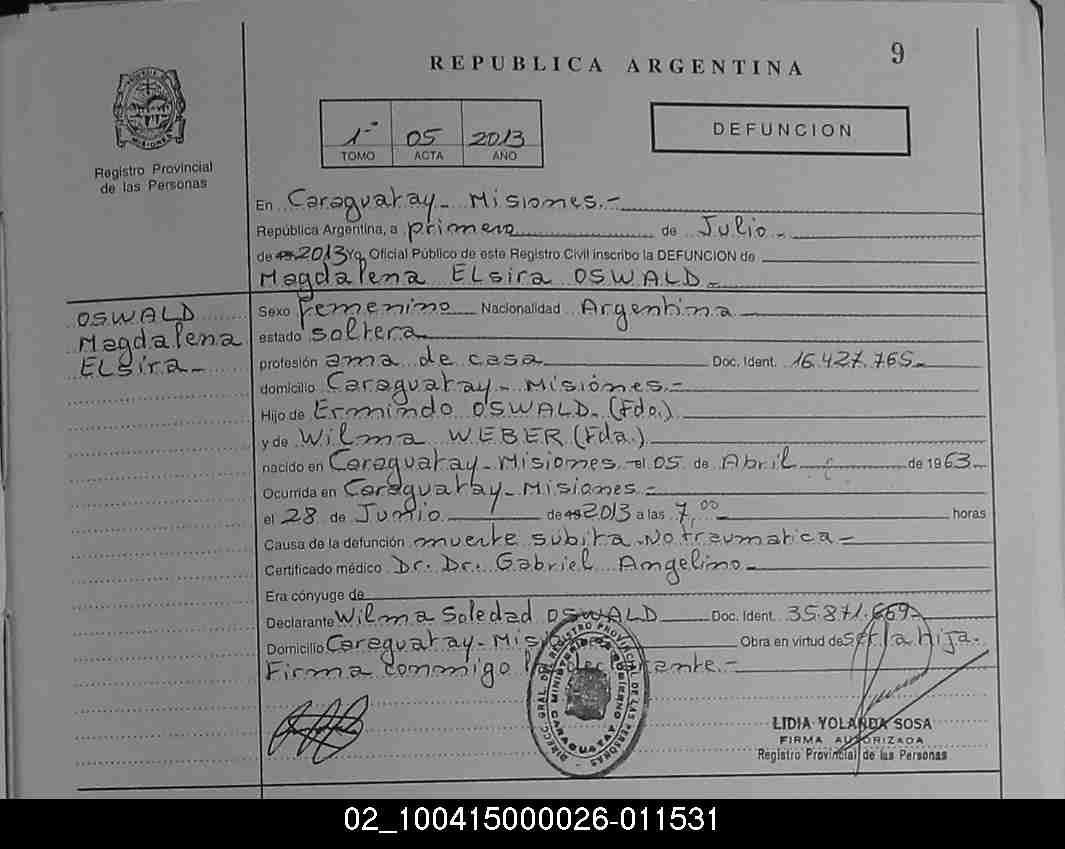 9
REPUBLICA ARGENTINA
1-º 05 2013
TOMO ACTA AÑO
DEFUNCION
Registro Provincial
de las Personas
En Caraguatay - Misiones.-
República Argentina, a primero de Julio -
de 2013 Yo, Oficial Público de este Registro Civil inscribo la DEFUNCION de
Magdalena ELsira OSWALD -
OSWALD
Magdalena
ELsira -
Sexo femenino Nacionalidad Argentina
estado soltera
profesión ama de casa Doc. Ident. 16.427.765-
domicilio Caraguatay - Misiones.-
Hijo de Ermindo OSWALD. (Fdo.)
y de Wilma WEBER (Fda.)
nacido en Caraguatay - Misiones - el 05 de Abril de 1963-
Ocurrida en Caraguatay - Misiones -
el 28 de Junio de 2013 a las 7,00 horas
Causa de la defunción muerte subita - No traumatica -
Certificado médico Dr. Dr. Gabriel Angelino -
Era cónyuge de
Declarante Wilma Soledad OSWALD Doc. Ident. 35.871.669-
Domicilio Caraguatay - Mis Obra en virtud de ser la hija.-
Firma conmigo
DIRECC. GRAL. DEL REGISTRO PROVINCIAL DE LAS PERSONAS
MINISTERIO DE GOBIERNO
CARAGUATAY
LIDIA YOLANDA SOSA
FIRMA AUTORIZADA
Registro Provincial de las Personas
02_100415000026-011531